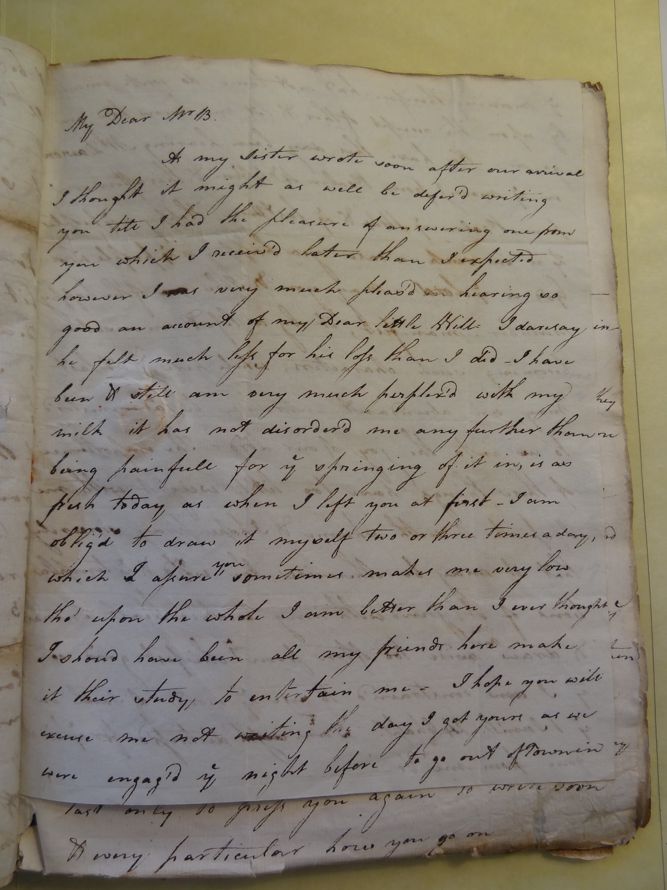 My Dear Mr B.
As my Sister wrote soon after our arival
I thought it might as well be defer'd writing
you till I had the pleasure of answering one from
you which I receiv'd later than I expected
however I was very much pleas'd in hearing so
good an account of my Dear little Will I daresay
he felt much less for his loss than I did - I have
been & still am very much perplex'd with my
milk it has not disorder'd me any further than
being painfull for ye springing of it in, is as
fresh today as when I left you at first - I am
oblig'd to draw it myself two or three times a day,
which I assure you sometimes makes me very low
tho' upon the whole I am better than I ever thought
I shou'd have been all my friends here make
it their study, to entertain me - I hope you will
excuse me not writing the day I got yours as we
were engag'd ye night before to go out of Town in
last only to press you again to write soon
& very particular how you go on
in
they
ye